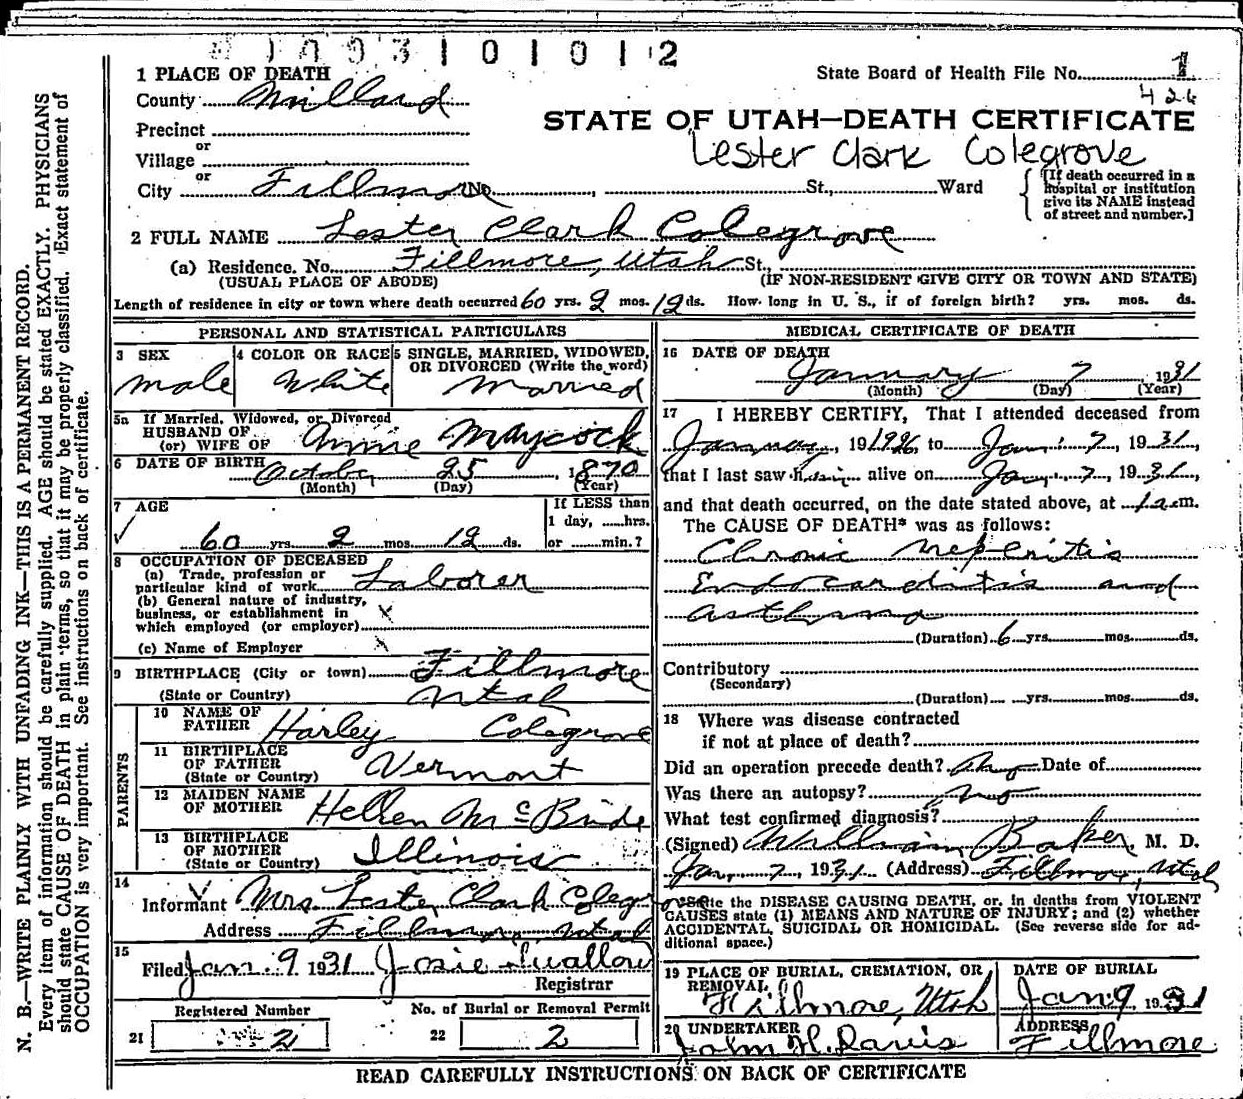 1003101012
1 PLACE OF DEATH
State Board of Health File No. 1
426
County Millard
STATE OF UTAH—DEATH CERTIFICATE
Precinct
or
Village
Lester Clark Colegrove
or
City Fillmore No. , St., Ward
[If death occurred in a hospital or institution give its NAME instead of street and number.]
2 FULL NAME Lester Clark Colegrove
(a) Residence. No. Fillmore, Utah St.,
(USUAL PLACE OF ABODE) (IF NON-RESIDENT GIVE CITY OR TOWN AND STATE)
Length of residence in city or town where death occurred 60 yrs. 2 mos. 12 ds. How long in U. S., if of foreign birth? yrs. mos. ds.
PERSONAL AND STATISTICAL PARTICULARS
3 SEX 4 COLOR OR RACE 5 SINGLE, MARRIED, WIDOWED,
OR DIVORCED (Write the word)
male White Married
5a If Married, Widowed, or Divorced
HUSBAND OF
(or) WIFE OF Annie Maycock
6 DATE OF BIRTH October 25 1870
(Month) (Day) (Year)
7 AGE If LESS than
1 day, hrs.
60 yrs. 2 mos. 12 ds. or min.?
8 OCCUPATION OF DECEASED
(a) Trade, profession or
particular kind of work Laborer
(b) General nature of industry,
business, or establishment in x
which employed (or employer)
(c) Name of Employer x
9 BIRTHPLACE (City or town) Fillmore
(State or Country) Utah
PARENTS
10 NAME OF
FATHER Harley Colegrove
11 BIRTHPLACE
OF FATHER
(State or Country) Vermont
12 MAIDEN NAME
OF MOTHER Hellen McBride
13 BIRTHPLACE
OF MOTHER
(State or Country) Illinois
14
Informant Mrs. Lester Clark Colegr
Address Fillmore, Utah
15
Filed Jan. 9 1931 Josie Swallow
Registrar
Registered Number No. of Burial or Removal Permit
21 2 22 2
MEDICAL CERTIFICATE OF DEATH
16 DATE OF DEATH
January 7 1931
(Month) (Day) (Year)
17 I HEREBY CERTIFY, That I attended deceased from
January, 191926, to Jan. 7, 1931,
that I last saw him alive on Jan. 7, 1931,
and that death occurred, on the date stated above, at 1 a.m.
The CAUSE OF DEATH* was as follows:
Chronic Nephritis
Endocarditis and
asthma
(Duration) 6 yrs. mos. ds.
Contributory
(Secondary)
(Duration) yrs. mos. ds.
18 Where was disease contracted
if not at place of death?
Did an operation precede death? Date of
Was there an autopsy? no
What test confirmed diagnosis?
(Signed) William Baker, M. D.
Jan. 7, 1931 (Address) Fillmore, Utah
*State the DISEASE CAUSING DEATH, or, in deaths from VIOLENT
CAUSES state (1) MEANS AND NATURE OF INJURY; and (2) whether
ACCIDENTAL, SUICIDAL OR HOMICIDAL. (See reverse side for ad-
ditional space.)
19 PLACE OF BURIAL, CREMATION, OR
REMOVAL
Fillmore, Utah
DATE OF BURIAL
Jan 9 1931
20 UNDERTAKER
John H. Davis
ADDRESS
Fillmore
READ CAREFULLY INSTRUCTIONS ON BACK OF CERTIFICATE
N. B.—WRITE PLAINLY WITH UNFADING INK—THIS IS A PERMANENT RECORD.
Every item of information should be carefully supplied. AGE should be stated EXACTLY. PHYSICIANS
should state CAUSE OF DEATH in plain terms, so that it may be properly classified. Exact statement of
OCCUPATION is very important. See instructions on back of certificate.